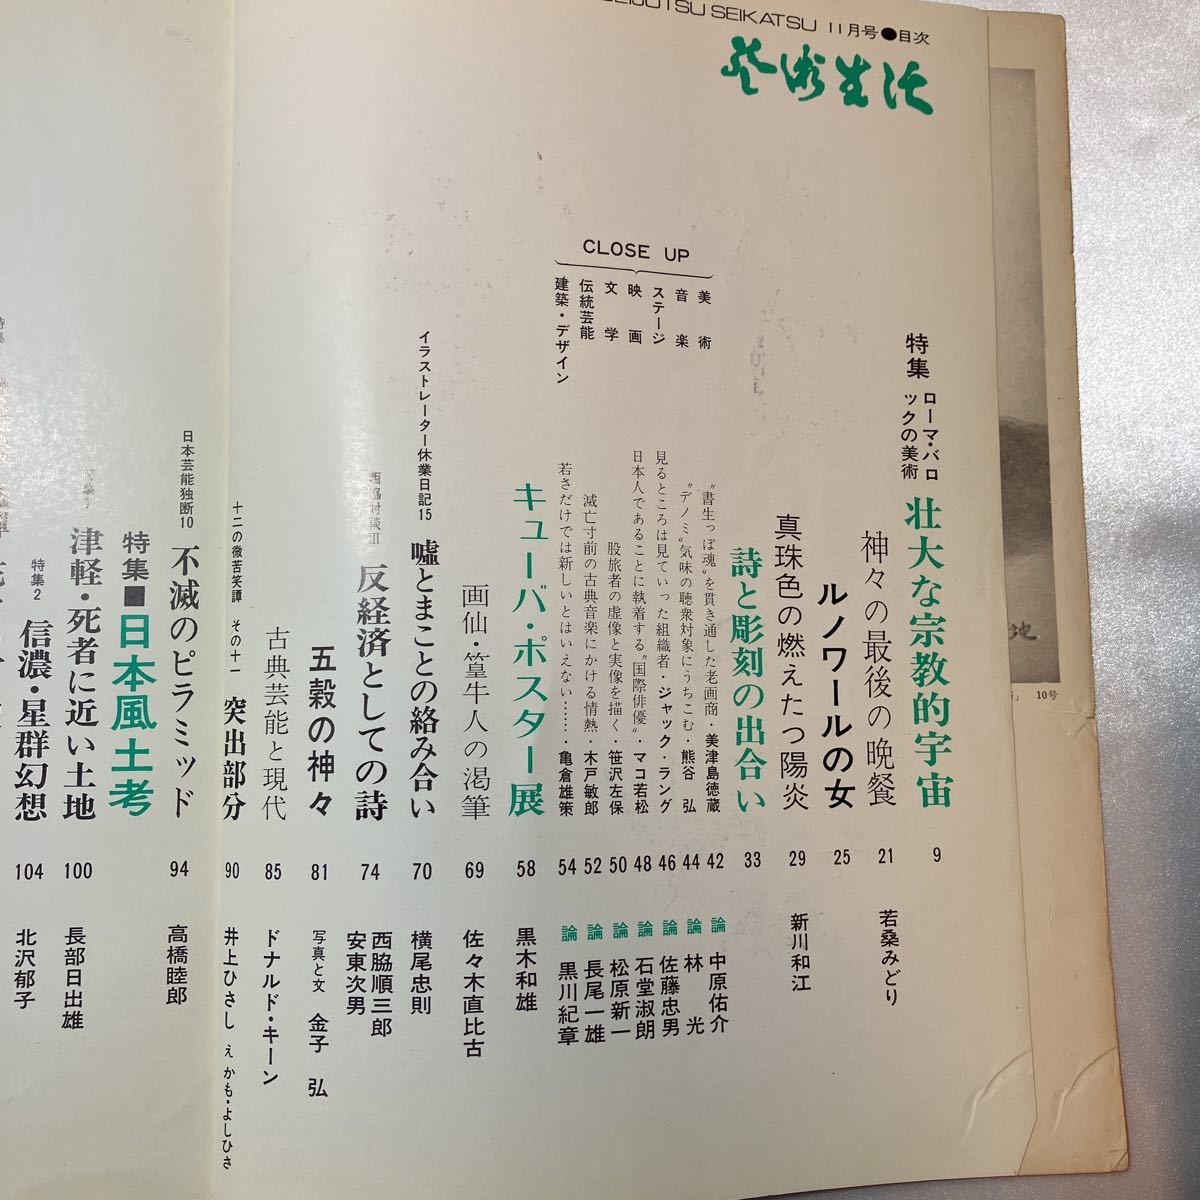 SEIKATSU 11月号●目次
芸術生活
特集 ローマ・バロックの美術 壮大な宗教的宇宙 9
神々の最後の晩餐 21 若桑みどり
ルノワールの女 25
真珠色の燃えたつ陽炎 29 新川和江
詩と彫刻の出合い 33
CLOSE UP
美術 〝書生っぽ魂〟を貫き通した老画商・美津島徳蔵 42 論 中原佑介
音楽 〝デノミ〟気味の聴衆対象にうちこむ・熊谷 弘 44 論 林 光
ステージ 見るところは見ていった組織者・ジャック・ラング 46 論 佐藤忠男
映画 日本人であることに執着する〝国際俳優〟マコ若松 48 論 石堂淑朗
文学 股旅者の虚像と実像を描く・笹沢左保 50 論 松原新一
伝統芸能 滅亡寸前の古典音楽にかける情熱・木戸敏郎 52 論 長尾一雄
建築・デザイン 若さだけでは新しいとはいえない……・亀倉雄策 54 論 黒川紀章
キューバ・ポスター展 58 黒木和雄
画仙・篁牛人の渇筆 69 佐々木直比古
イラストレーター休業日記15 嘘とまことの絡み合い 70 横尾忠則
西脇対談Ⅲ 反経済としての詩 74 西脇順三郎 安東次男
五穀の神々 81 写真と文 金子 弘
古典芸能と現代 85 ドナルド・キーン
十二の微苦笑譚 その十一 突出部分 90 井上ひさし え かも・よしひさ
日本芸能独断10 不滅のピラミッド 94 高橋睦郎
特集■日本風土考
特集1 津軽・死者に近い土地 100 長部日出雄
特集2 信濃・星群幻想 104 北沢郁子
特集
地
10号